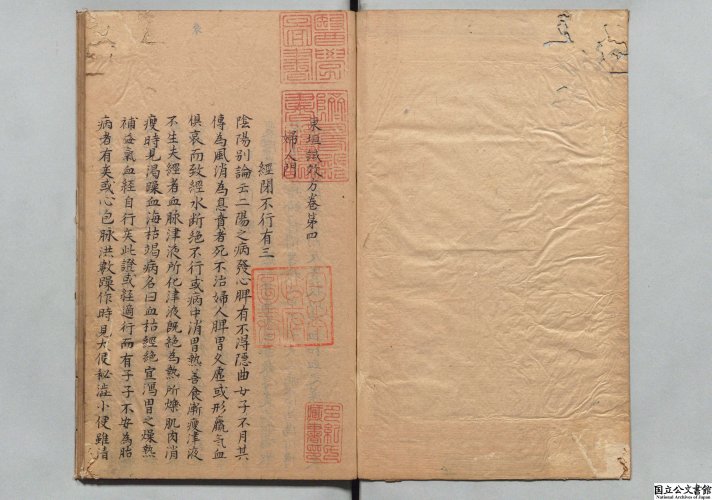 東垣試效方卷第四
婦人門
經閉不行有三
陰陽別論云二陽之病發心脾有不得隱曲女子不月其
傳為風消為息賁者死不治婦人脾胃久虛或形羸氣血
俱衰而致經水斷絕不行或病中消胃熱善食漸瘦津液
不生夫經者血脉津液所化津液既絕為熱所爍肌肉消
瘦時見渴躁血海枯竭病名曰血枯經絕宜瀉胃之燥熱
補益氣血經自行矣此證或經適行而有子子不安為胎
病者有矣或心包脉洪數躁作時見大便秘澁小便雖清
国立公文書館
National Archives of Japan